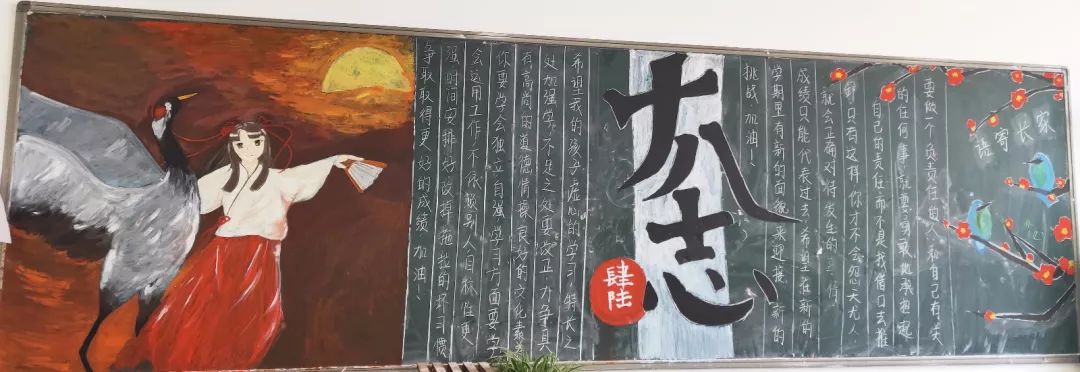 家长寄语
要做一个负责任的人和自己有关
的任何事就要勇敢地承担起
自己的责任而不是找借口去推
卸只有这样你才不会怨天尤人
就会正确对待发生的
成绩只能代表过去希望在新的
学期里有新的面貌来迎接新的
挑战加油、
十八志
肆陆
希望我的孩子虚心的学习,特长之
处加强学,不足之处要改正,力争具
有高尚的道德情操良好的文化素
你要学会独立自强学习方面要学
会运用工作,不依赖别人自觉性更
强时间安排好改掉拖拉的坏习惯
争取取得更好的成绩 加油、